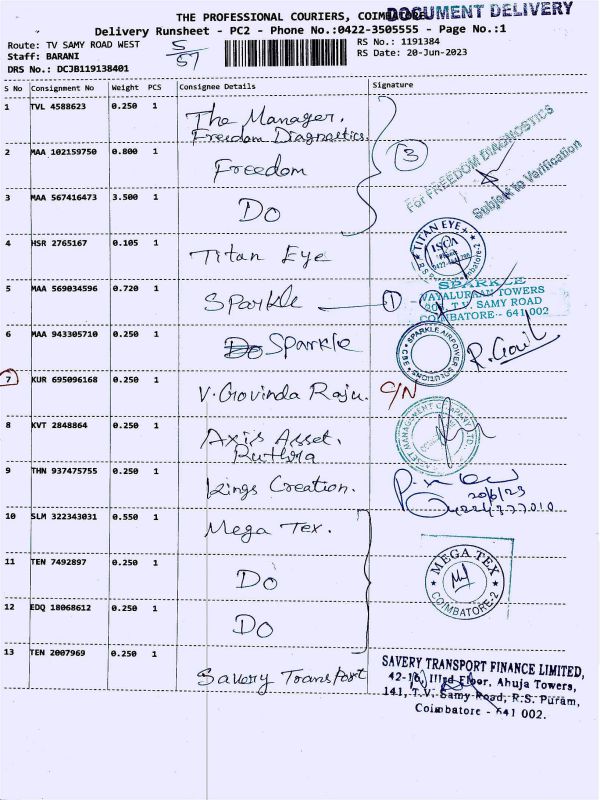 DOCUMENT DELIVERY
THE PROFESSIONAL COURIERS, COIMBATORE
Delivery Runsheet - PC2 - Phone No.:0422-3505555 - Page No.:1
Route: TV SAMY ROAD WEST
5/57
RS No.: 1191384
Staff: BARANI
RS Date: 20-Jun-2023
DRS No.: DCJB119138401
S No Consignment No Weight PCS Consignee Details Signature
1 TVL 4588623 0.250 1 The Manager.
Freedom Diagnostics.
For FREEDOM DIAGNOSTICS
Subject to Verification
2 MAA 102159750 0.800 1 Freedom
3
3 MAA 567416473 3.500 1 Do
4 HSR 2765167 0.105 1 Titan Eye
TITAN EYE+
5 MAA 569034596 0.720 1 Sparkle 1
SPARKLE
TOWERS
T.V. SAMY ROAD
COIMBATORE - 641 002
6 MAA 943305710 0.250 1 Do Sparkle
SPARKLE AIRPOWER SOLUTIONS CBE
7 KUR 695096168 0.250 1 V. Govinda Raju. C/N
8 KVT 2848864 0.250 1 Axis Asset.
Ruthra
ASSET MANAGEMENT COMPANY LTD.
9 THN 937475755 0.250 1 Kings Creation.
20/6/23
10 SLM 322343031 0.550 1 Mega Tex.
11 TEN 7492897 0.250 1 Do
MEGA TEX
COIMBATORE-2
12 EDQ 18068612 0.250 1 Do
13 TEN 2007969 0.250 1 Savery Transport
SAVERY TRANSPORT FINANCE LIMITED,
IIIrd Floor, Ahuja Towers,
141, T.V. Samy Road, R.S. Puram,
Coimbatore - 641 002.